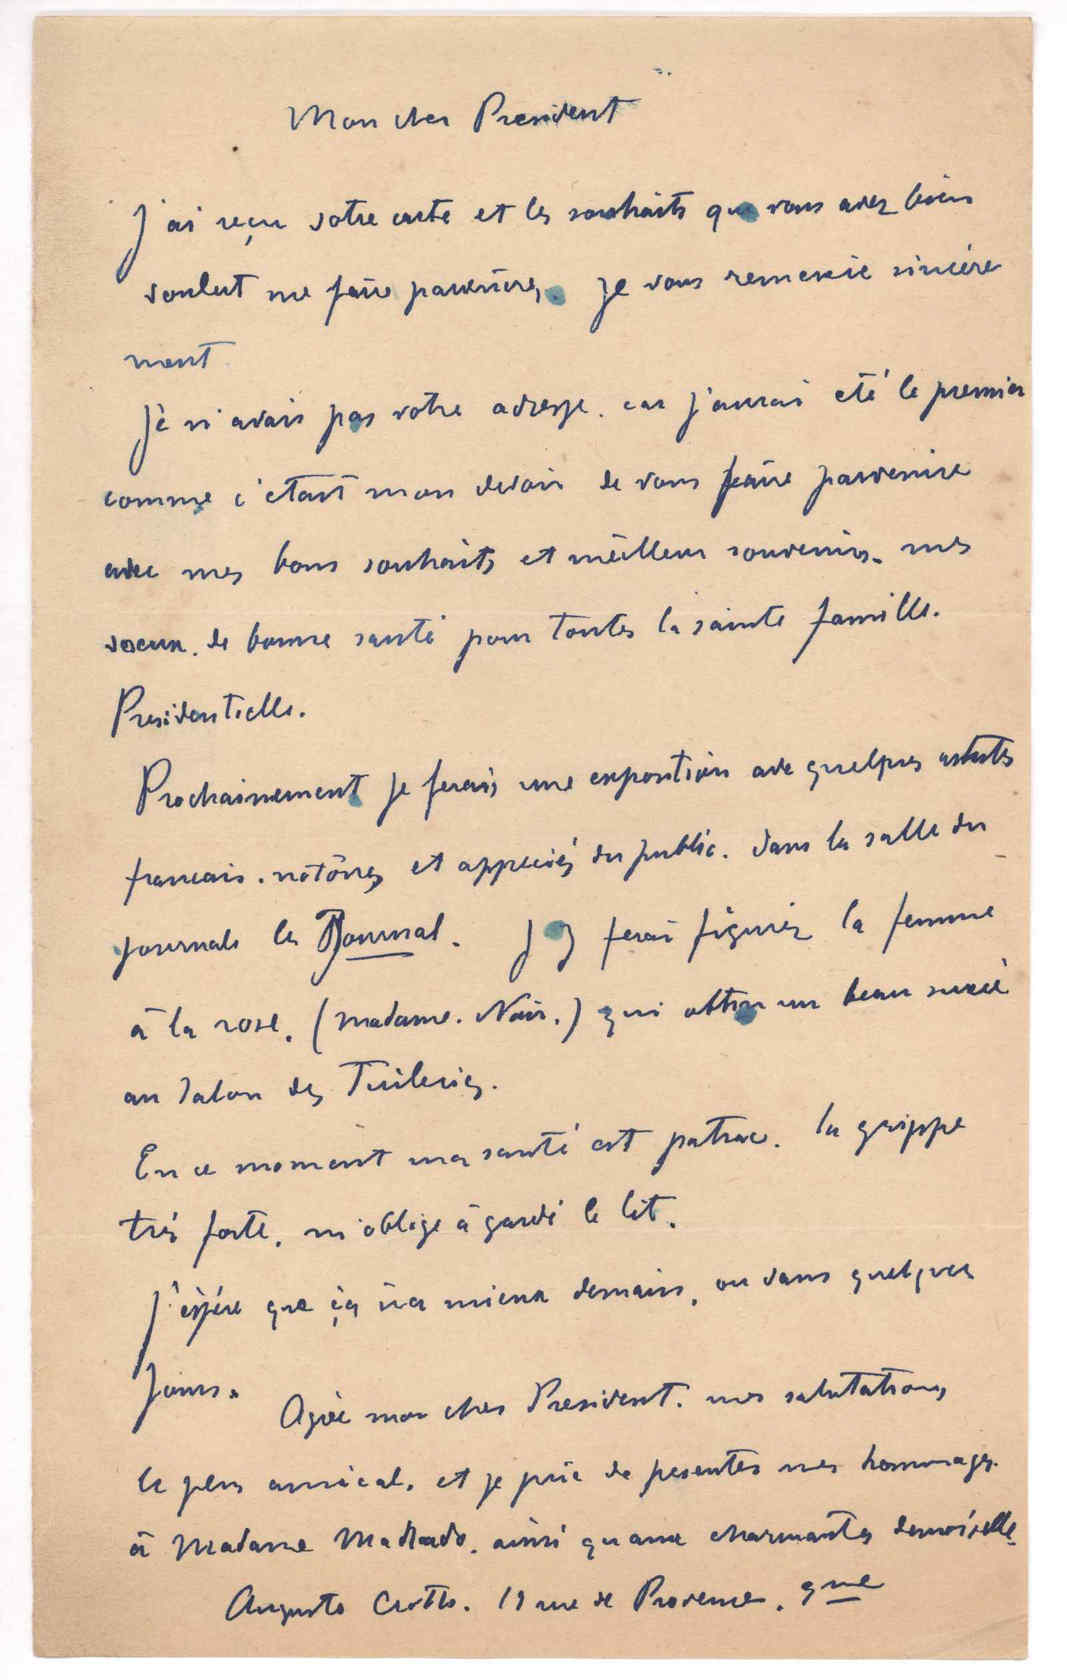 Mon cher President
J'ai reçu votre carte et les souhaits que vous avez bien
voulut me faire parvenires. Je vous remercie sincère
ment
Je n'avais pas votre adresse. car j'aurai eté le premier
comme c'etait mon devoir de vous faire parvenire
avec mes bons souhaits et meilleur souvenirs. mes
voeux. de bonne santé pour toutes la sainte famille.
Presidentielle.
Prochainement je ferais une exposition avec quelques artistes
francais. notoires et appreciés du public. dans la salle du
journale le Journal. J'y ferai figurer la femme
à la rose. (madame. Noir.) qui obtin un beau succè
au Salon des Tuileries.
En ce moment ma santé est patrac. la grippe
très forte. m'oblige à gardé le lit.
J'éspére que ça ira mieux demain, ou dans quelques
jours.
Agrée mon cher President. mes salutations
le plus amical. et je prie de presenter mes hommages.
à Madame Machado. ainsi qu'aux charmantes demoiselle.
Augusto 19 rue de Provence.